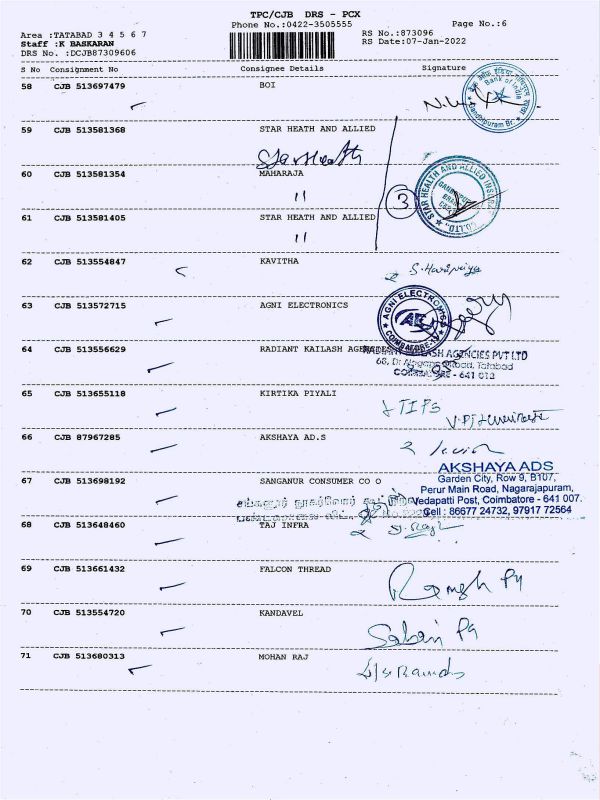 TPC/CJB DRS - PCX
Phone No.:0422-3505555
Page No.:6
Area :TATABAD 3 4 5 6 7
RS No.:873096
Staff :K BASKARAN
RS Date:07-Jan-2022
DRS No. :DCJB87309606
S No Consignment No Consignee Details Signature
58 CJB 513697479 BOI
Bank of India
59 CJB 513581368 STAR HEATH AND ALLIED
Star Health
60 CJB 513581354 MAHARAJA
11
3
STAR HEALTH AND ALLIED INSURANCE CO.LTD.,
61 CJB 513581405 STAR HEATH AND ALLIED
11
62 CJB 513554847 KAVITHA
S. Haripriya
63 CJB 513572715 AGNI ELECTRONICS
AGNI ELECTRONICS
COIMBATORE-12
64 CJB 513556629 RADIANT KAILASH AGE
AGENCIES PVT LTD
Tatabad
- 641 012
65 CJB 513655118 KIRTIKA PIYALI
66 CJB 87967285 AKSHAYA AD.S
AKSHAYA ADS
Garden City, Row 9, B107,
Perur Main Road, Nagarajapuram,
Vedapatti Post, Coimbatore - 641 007.
Cell : 86677 24732, 97917 72564
67 CJB 513698192 SANGANUR CONSUMER CO O
68 CJB 513648460 TAJ INFRA
69 CJB 513661432 FALCON THREAD
Ramesh
70 CJB 513554720 KANDAVEL
71 CJB 513680313 MOHAN RAJ